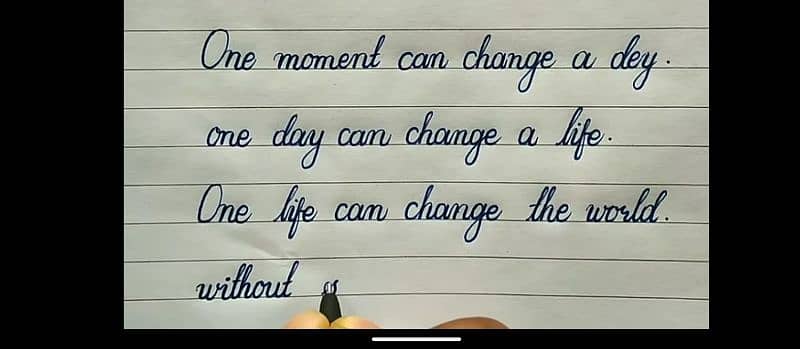 One moment can change a dey.
one day can change a life.
One life can change the world.
without